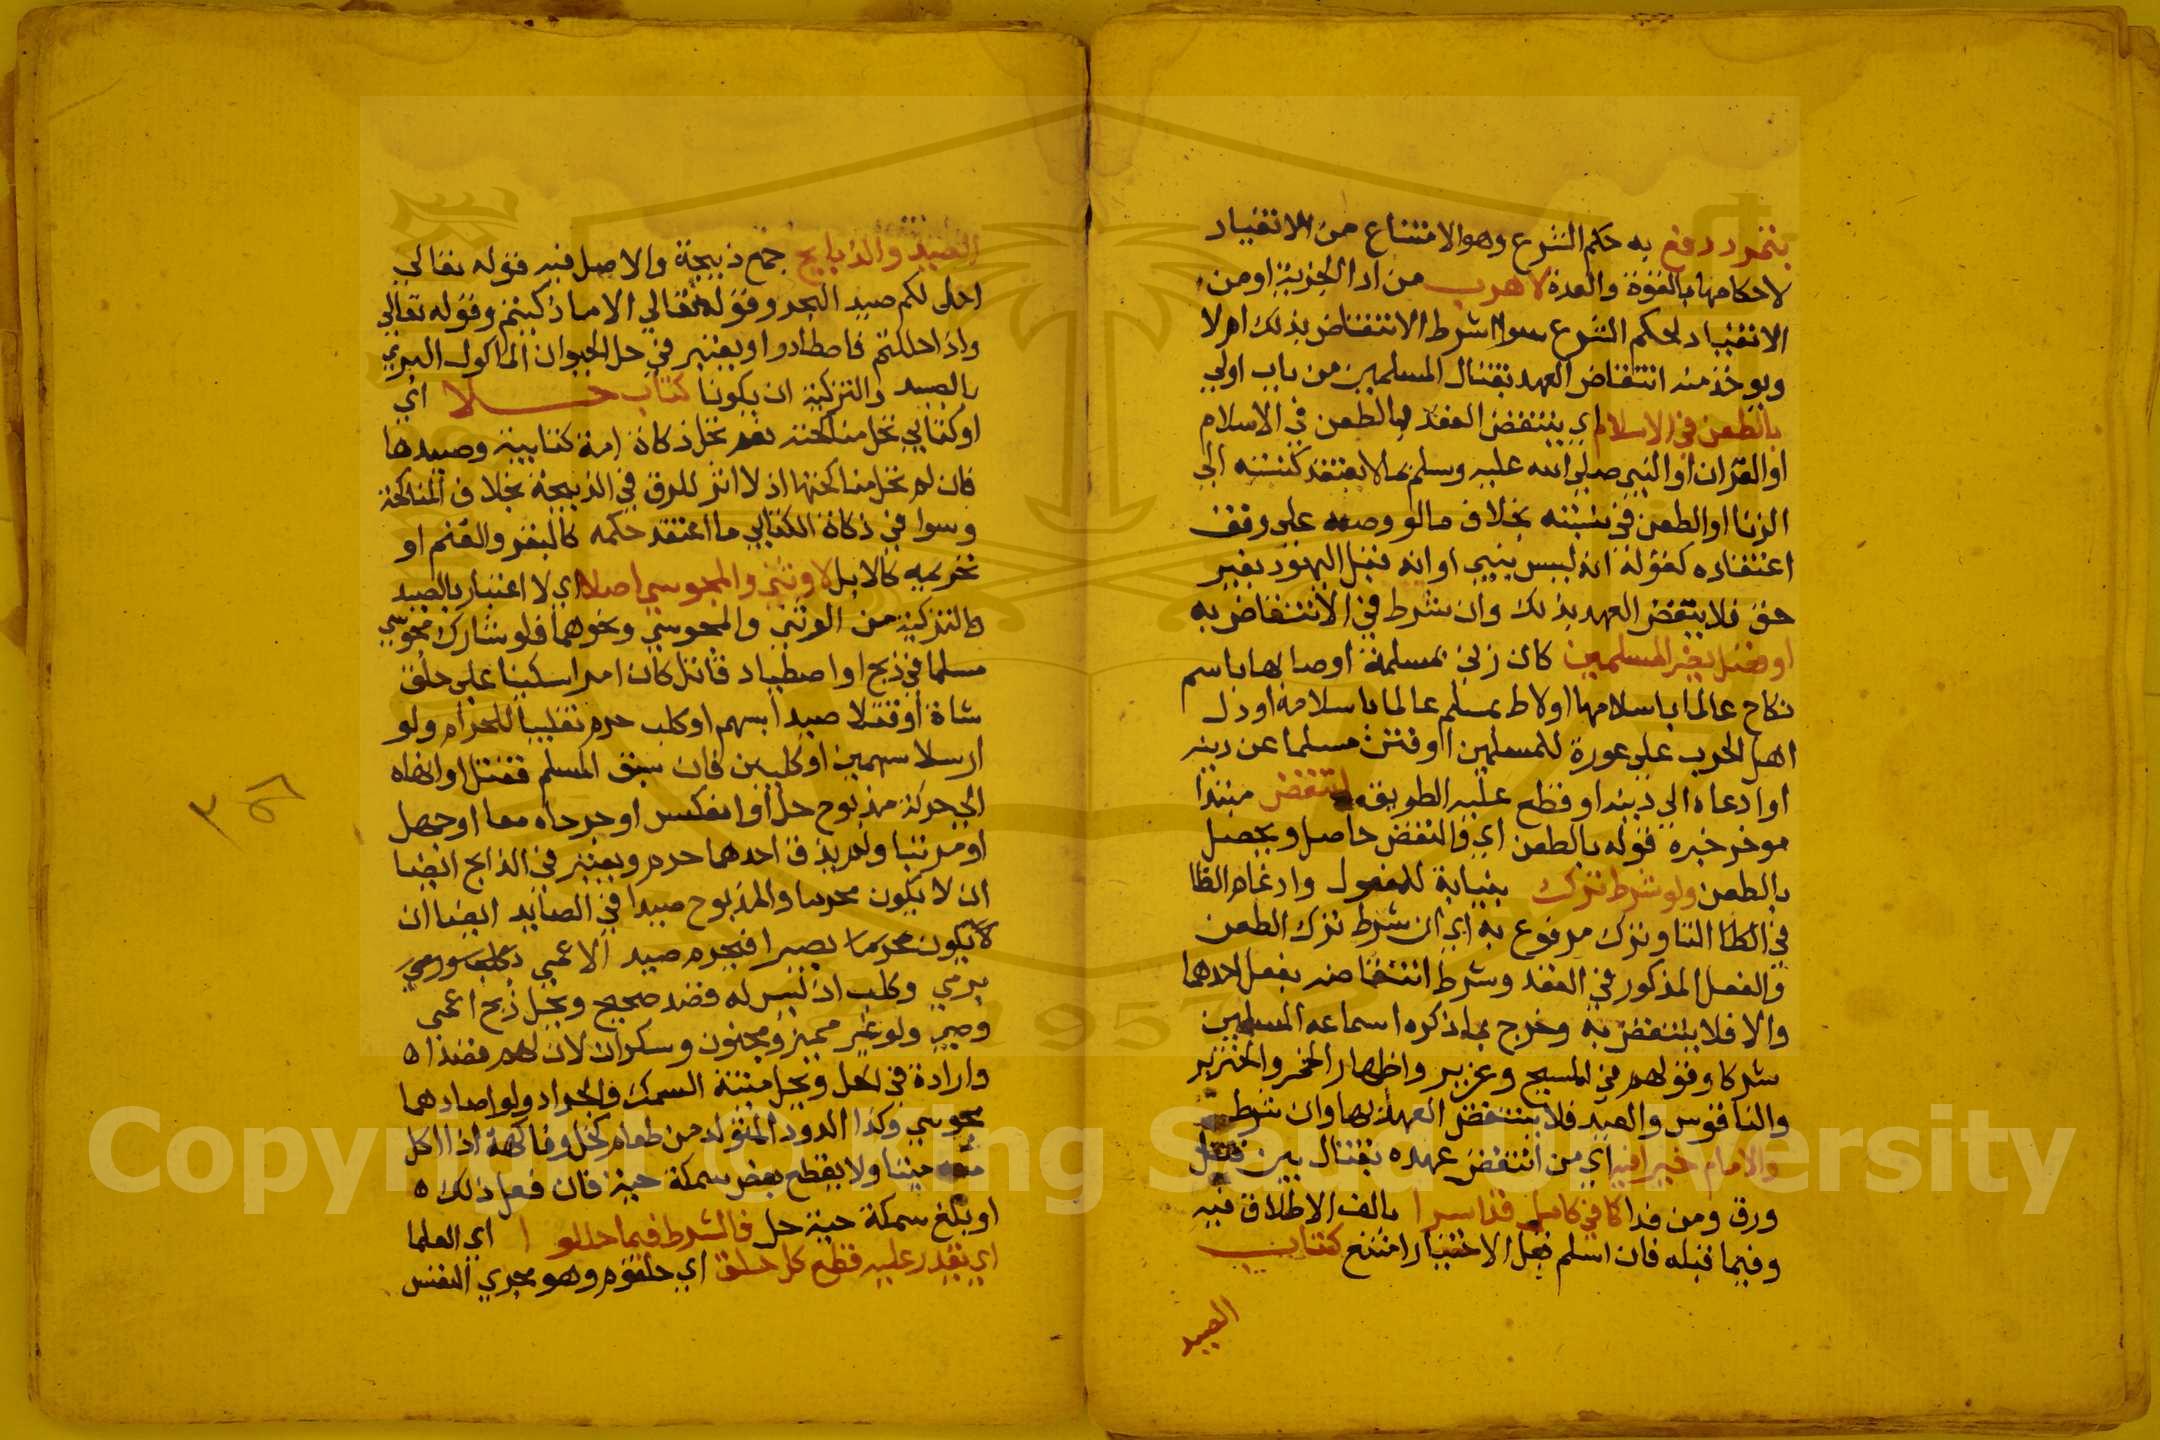 بتمرد دفع به حكم الشرع وهو الامتناع من الانقياد
لاحكامها بالقوة والعدة لا هرب من ادا الجزية او من
الانقياد لحكم الشرع سوا شرط الانتقاض بذلك ام لا
ويوخذ منه انتقاض العهد بقتال المسلمين من باب اولي
بالطعن في الاسلام اي ينتقض العقد بالطعن في الاسلام
او القران او النبي صلي الله عليه وسلم بما لا يعتقد كنسبته الي
الزنا او الطعن في نسبته بخلاف ما لو وصفه علي وفق
اعتقاده كقوله انه ليس بنبي او انه قتل اليهود بغير
حق فلا ينتقض العهد بذلك وان شرط في الانتقاض به
او فعل يضر المسلمين كان زني بمسلمة او صابها باسم
نكاح عالما باسلامها او لاط بمسلم عالما باسلامه او دل
اهل الحرب علي عورة للمسلمين او فتن مسلما عن دينه
او ادعاه الي دينه او قطع عليه الطريق ينتقض مبتدا
موخر خبره قوله بالطعن اي فالنقض حاصل ويحصل
بالطعن ولو شرط ترك بنيابة للمفعول وادغام الطا
في الطا التا وترك مرفوع به اي ان شرط ترك الطعن
والفعل المذكور في العقد وشرط انتقاضه بفعل احدهما
والا فلا ينتقض به وخرج بما ذكره اسماعه المسلمين
شركا وقولهم في المسيح وعزير واظهار الخمر والخنزير
والناقوس والعيد فلا ينتقض العهد بها وان شرط
والامام خير فيه اي من انتقض عهده بقتال بين قتل
ورق ومن فدا كافي كامل قد اسرا بالف الاطلاق فيه
وفيما قبله فان اسلم قبل الاختيار امتنع كتاب
الصيد
الصيد والذبايح جمع ذبيحة والاصل فيه قوله تعالي
احل لكم صيد البحر وقوله تعالي الا ما ذكيتم وقوله تعالي
واذا حللتم فاصطادوا ويعتبر في حل الحيوان الماكول البري
بالصيد والتزكية ان يكونا كتاب حلا اي
او كتابي تحل مناكحته نعم تحل ذكاة امة كتابية وصيدها
فان لم تحل مناكحتها اذ لا اثر للرق في الذبيحة بخلاف المناكحة
وسوا في ذكاة الكتابي ما اعتقد حكمه كالبقر والغنم او
تحريمه كالابل لا وثني والمجوسي اصلا اي لا اعتبار بالصيد
والتزكية من الوثني والمجوسي ونحوهما فلو شارك مجوسي
مسلما في ذبح او اصطياد قاتل كان امرا سكينا علي حلق
شاة او قتلا صيدا بسهم او كلب حرم تغليبا للحرام ولو
ارسلا سهمين او كلبين فان سبق المسلم فقتل او انهاه
الي حركة مذبوح حل او انعكس او جرحاه معا او جهل
او مرتبا ولم يذفف احدهما حرم ويعتبر في الذابح ايضا
ان لا يكون محرما والمذبوح صيدا في الصايد ايضا ان
لا يكون محرما بصيرا فيحرم صيد الاعمي
برمي وكلب اذ ليس له قصد صحيح ويحل ذبح اعمي
وصبي ولو غير مميز ومجنون وسكران لان لهم قصدا
وارادة في الحل ويحل ميتة السمك والجراد ولو اصادهما
مجوسي وكذا الدود المتولد من طعام كخل وفاكهة اذا اكل
معه ميتا ولا يقطع بعض سمكة حية فان فعل ذلك
او بلغ سمكة حية حل فالشرط فيما حللوا اي العلما
اي يقدر عليه قطع كل حلق اي حلقوم وهو مجري النفس
Copyright © King Saud University
1957